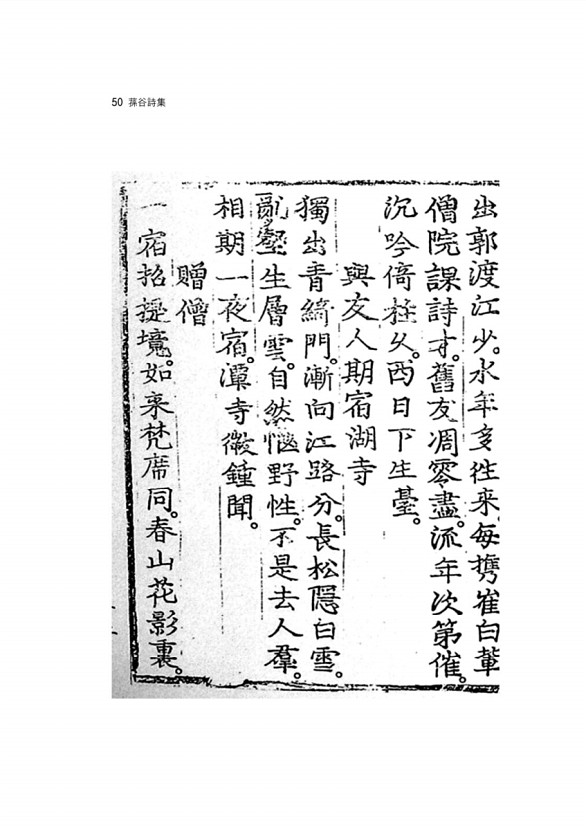 50 蓀谷詩集
出郭渡江少。水年多往来每携崔白輩
僧院課詩才。舊友凋零盡。流年次第催。
沉吟倚柱久。西日下生臺。
與友人期宿湖寺
獨出青綺門。漸向江路分。長松隱白雪。
亂壑生層雲。自然愜野性。不是去人羣。
相期一夜宿。潭寺微鍾聞。
贈僧
一宿招提境。如来梵席同。春山花影裏。